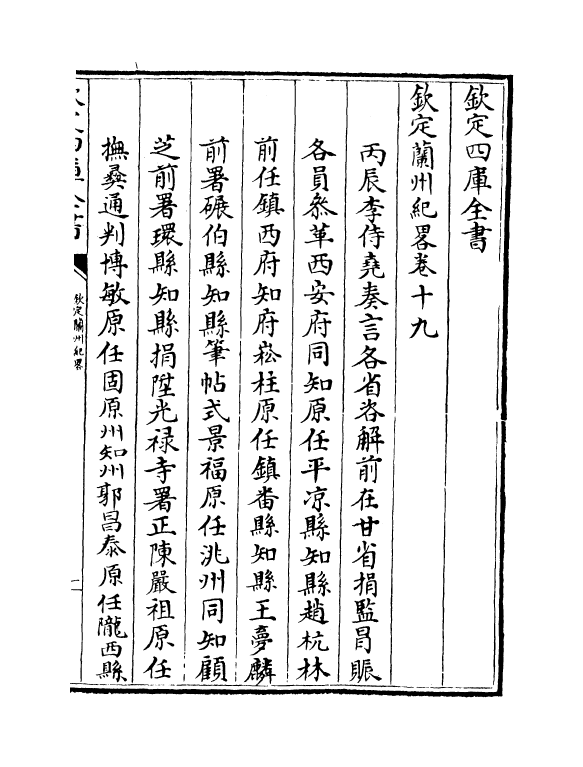 欽定四庫全書
欽定蘭州紀畧卷十九
丙辰李侍堯奏言各省咨解前在甘省捐監冒賑
各員叅革西安府同知原任平涼縣知縣趙杭林
前任鎮西府知府崧柱原任鎮番縣知縣王夢麟
前署碾伯縣知縣筆帖式景福原任洮州同知顧
芝前署環縣知縣捐陞光禄寺署正陳嚴祖原任
撫彝通判博敏原任固原州知州郭昌泰原任隴西縣
欽定蘭州紀畧
一